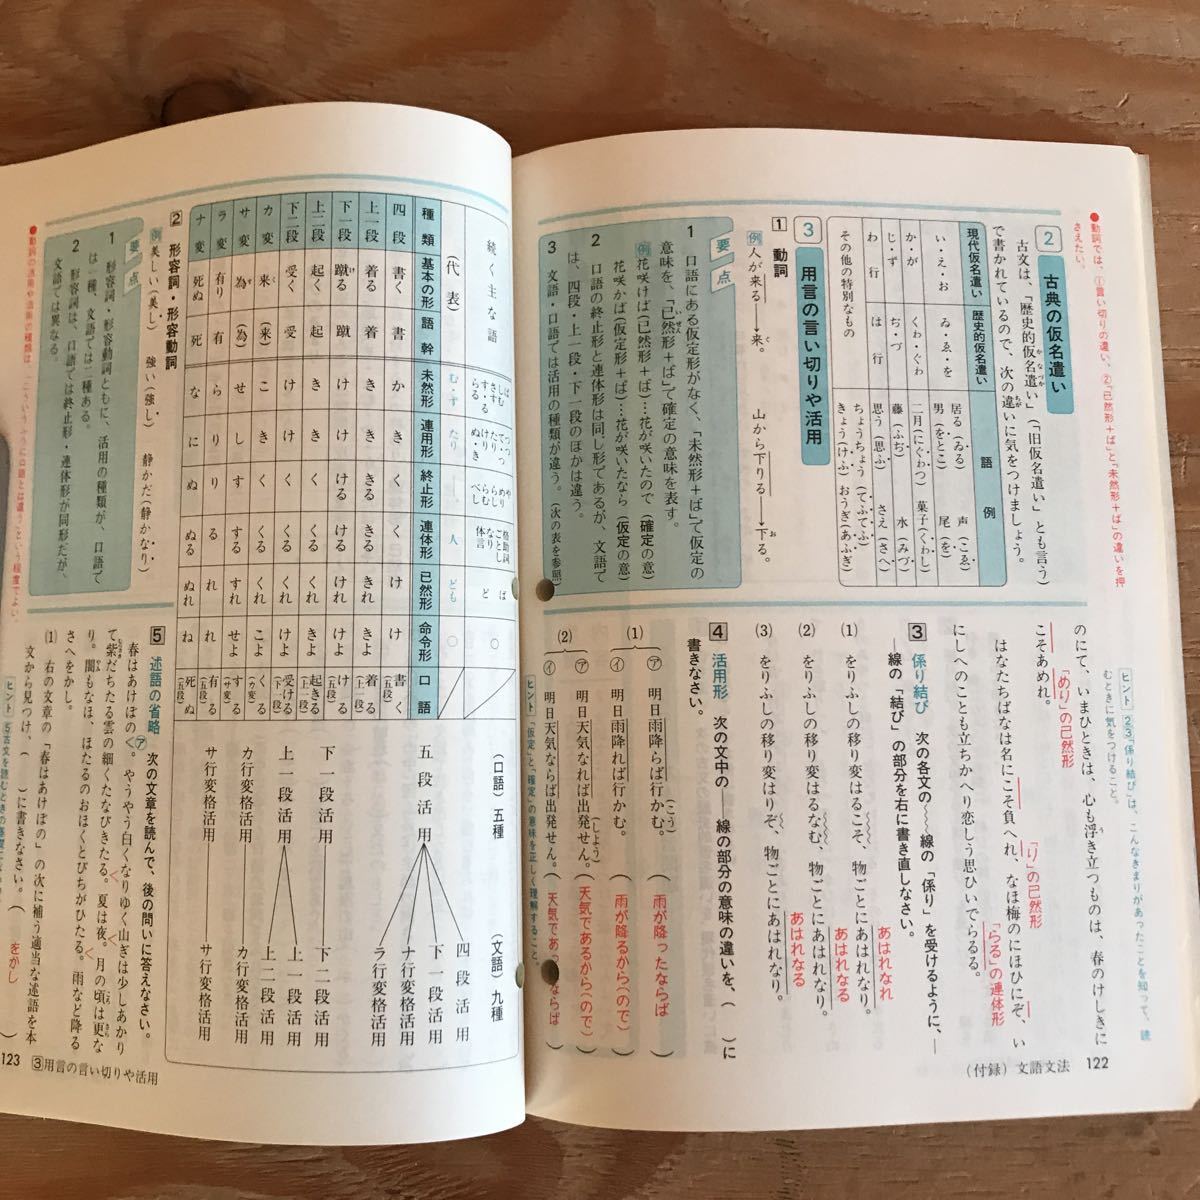 ●動詞では、①言い切りの違い、②「已然形＋ば」と「未然形＋ば」の違いを押
さえたい。
2 古典の仮名遣い
古文は、「歴史的仮名遣い」（「旧仮名遣い」とも言う）
で書かれているので、次の違いに気をつけましょう。
現代仮名遣い 歴史的仮名遣い 語例
い・え・お ゐ・ゑ・を 居る（ゐる） 声（こゑ） 男（をとこ） 尾（を）
か・が くわ・ぐわ 二月（にぐわつ） 菓子（くわし）
じ・ず ぢ・づ 藤（ふぢ） 水（みづ）
わ行 は行 思う（思ふ） さえ（さへ）
その他の特別なもの ちょうちょう（てふてふ） きょう（けふ） おうぎ（あふぎ）
3 用言の言い切りや活用
1 動詞
例 人が来る→来。 山から下りる→下る。
要点
1 口語にある仮定形がなく、「未然形＋ば」で仮定の
意味を、「已然形＋ば」で確定の意味を表す。
例 花咲けば（已然形＋ば）…花が咲いたので（確定の意）
花咲かば（仮定形＋ば）…花が咲いたなら（仮定の意）
2 口語の終止形と連体形は同じ形であるが、文語で
は、四段・上一段・下一段のほかは違う。
3 文語・口語では活用の種類が違う。（次の表を参照）
ヒント 2 3「係り結び」は、こんなきまりがあったことを知って、読
むときに気をつけること。
のにて、いまひときは、心も浮き立つものは、春のけしきに
こそあめれ。
「めり」の已然形
はなたちばなは名にこそ負へれ、なほ梅のにほひにぞ、い
「り」の已然形
にしへのことも立ちかへり恋しう思ひいでらるる。
「らる」の連体形
3 係り結び 次の各文の〜〜線の「係り」を受けるように、—
—線の「結び」の部分を右に書き直しなさい。
(1) をりふしの移り変はるこそ、物ごとにあはれなり。
あはれなれ
(2) をりふしの移り変はるなむ、物ごとにあはれなり。
あはれなる
(3) をりふしの移り変はりぞ、物ごとにあはれなり。
あはれなる
4 活用形 次の文中の——線の部分の意味の違いを、（ ）に
書きなさい。
(1) ㋐ 明日雨降らば行かむ。（こう）（雨が降ったならば）
㋑ 明日雨降れば行かむ。（雨が降るから（ので））
(2) ㋐ 明日天気なれば出発せん。（しよう）（天気であるから（ので））
㋑ 明日天気ならば出発せん。（天気であったならば）
ヒント 「仮定」と「確定」の意味を正しく理解すること。
（付録）文語文法 122
続く主な語
（代表） む・ず たり ― 人 ども ○
種類 基本の形 語幹 未然形 連用形 終止形 連体形 已然形 命令形 口語
四段 書く 書 か き く く け け 書く（五段）
上一段 着る 着 き き きる きる きれ きよ 着る（上一段）
下一段 蹴る 蹴 け け ける ける けれ けよ
上二段 起く 起 き き く くる くれ きよ 起きる（上一段）
下二段 受く 受 け け く くる くれ けよ 受ける（下一段）
カ変 来 （来） こ き く くる くれ こよ くる（カ変）
サ変 為 （為） せ し す する すれ せよ する（サ変）
ラ変 有り 有 ら り り る れ れ 有る（五段）
ナ変 死ぬ 死 な に ぬ ぬる ぬれ ね 死ぬ（五段）
（口語）五種 （文語）九種
五段活用
上一段活用
下一段活用
カ行変格活用
サ行変格活用
四段活用
下一段活用
ナ行変格活用
ラ行変格活用
下二段活用
上二段活用
上一段活用
カ行変格活用
サ行変格活用
2 形容詞・形容動詞
例 美しい（美し） 強い（強し） 静かだ（静かなり）
要点
1 形容詞・形容動詞ともに、活用の種類が、口語で
は一種、文語では二種ある。
2 形容詞は、口語では終止形・連体形が同形だが、
文語では異なる。
5 述語の省略 次の文章を読んで、後の問いに答えなさい。
春はあけぼの㋐。やうやう白くなりゆく山ぎは少しあかり
て紫だちたる雲の細くたなびきたる。夏は夜。月の頃は更な
り。闇もなほ、ほたるのおほくとびちがひたる。雨など降る
さへをかし。
(1) 右の文章の「春はあけぼの」の次に補う適当な述語を本
文から見つけ、（ ）に書きなさい。（をかし）
123 3 用言の言い切りや活用